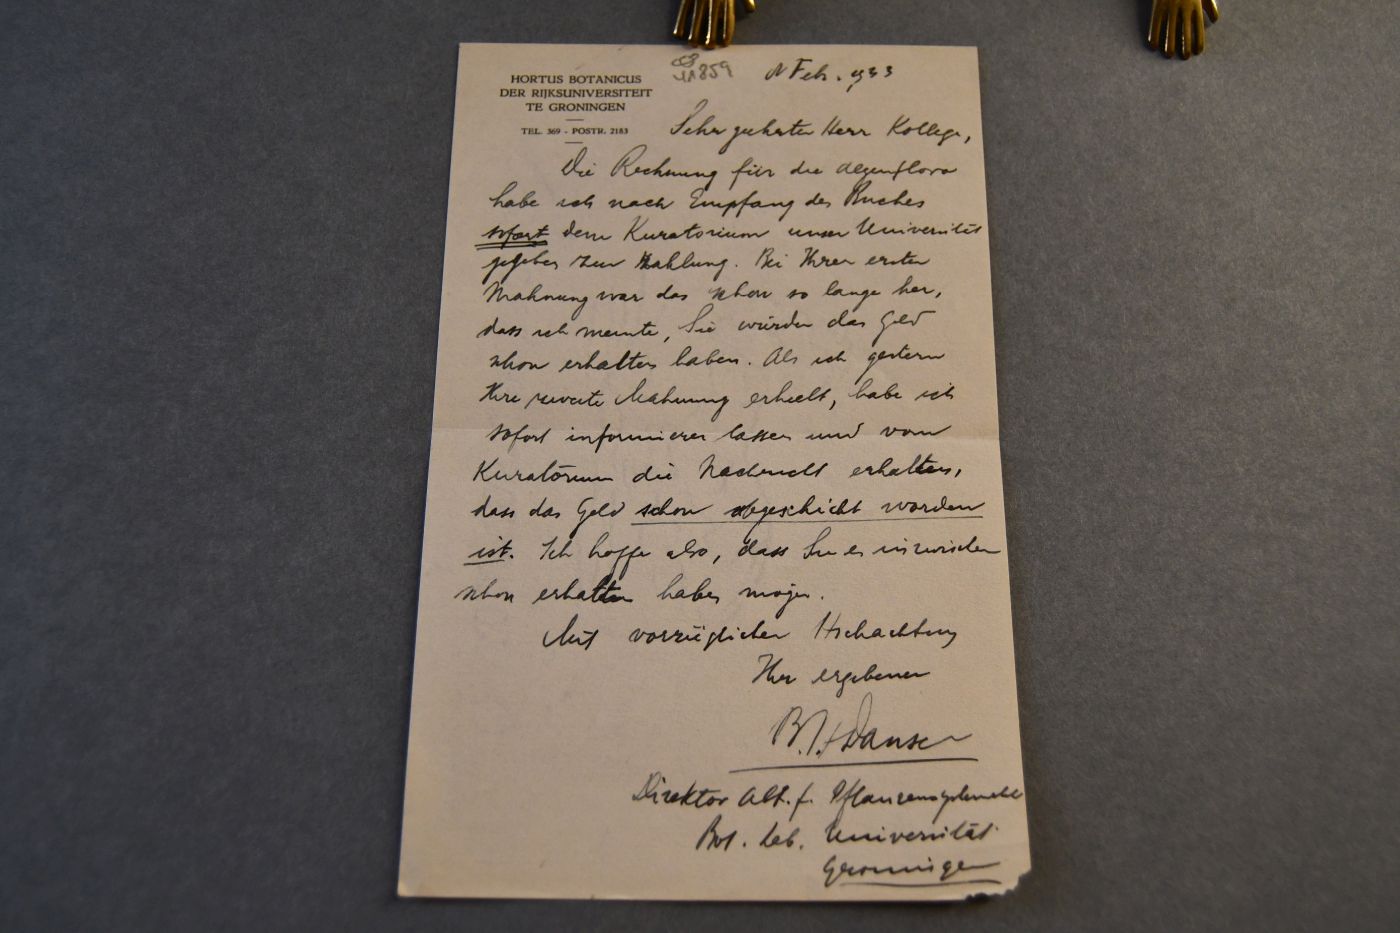 HORTUS BOTANICUS
DER RIJKSUNIVERSITEIT
TE GRONINGEN
TEL. 369 - POSTR. 2183
11859
Feb. 1933
Sehr geehrter Herr Kollege,
Die Rechnung für die Algenflora
habe ich nach Empfang des Buches
sofort dem Kuratorium unser Universität
gegeben zur Zahlung. Bei Ihrer ersten
Mahnung war das schon so lange her,
dass ich meinte, Sie würden das Geld
schon erhalten haben. Als ich gestern
Ihre zweite Mahnung erhielt, habe ich
sofort informieren lassen und vom
Kuratorium die Nachricht erhalten,
dass das Geld schon abgeschickt worden
ist. Ich hoffe also, dass Sie es inzwischen
schon erhalten haben mögen.
Mit vorzüglicher Hochachtung
Ihr ergebener
B. H. Danser
Direktor Abt. f. Pflanzensystematik
Bot. Lab. Universität
Groningen